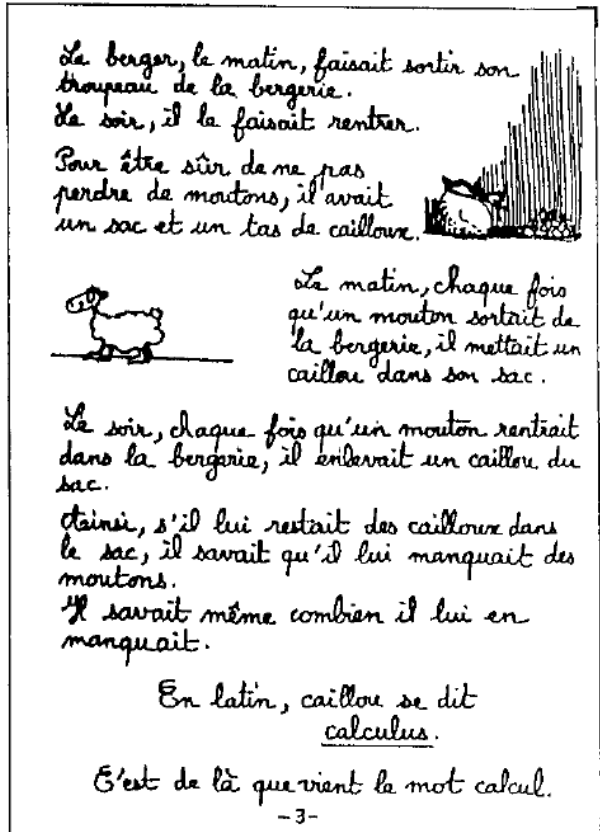 Le berger, le matin, faisait sortir son
troupeau de la bergerie.
Le soir, il le faisait rentrer.
Pour être sûr de ne pas
perdre de moutons, il avait
un sac et un tas de cailloux.
Le matin, chaque fois
qu'un mouton sortait de
la bergerie, il mettait un
caillou dans son sac.
Le soir, chaque fois qu'un mouton rentrait
dans la bergerie, il enlevait un caillou du
sac.
Ainsi, s'il lui restait des cailloux dans
le sac, il savait qu'il lui manquait des
moutons.
Il savait même combien il lui en
manquait.
En latin, caillou se dit
calculus.
C'est de là que vient le mot calcul.
-3-